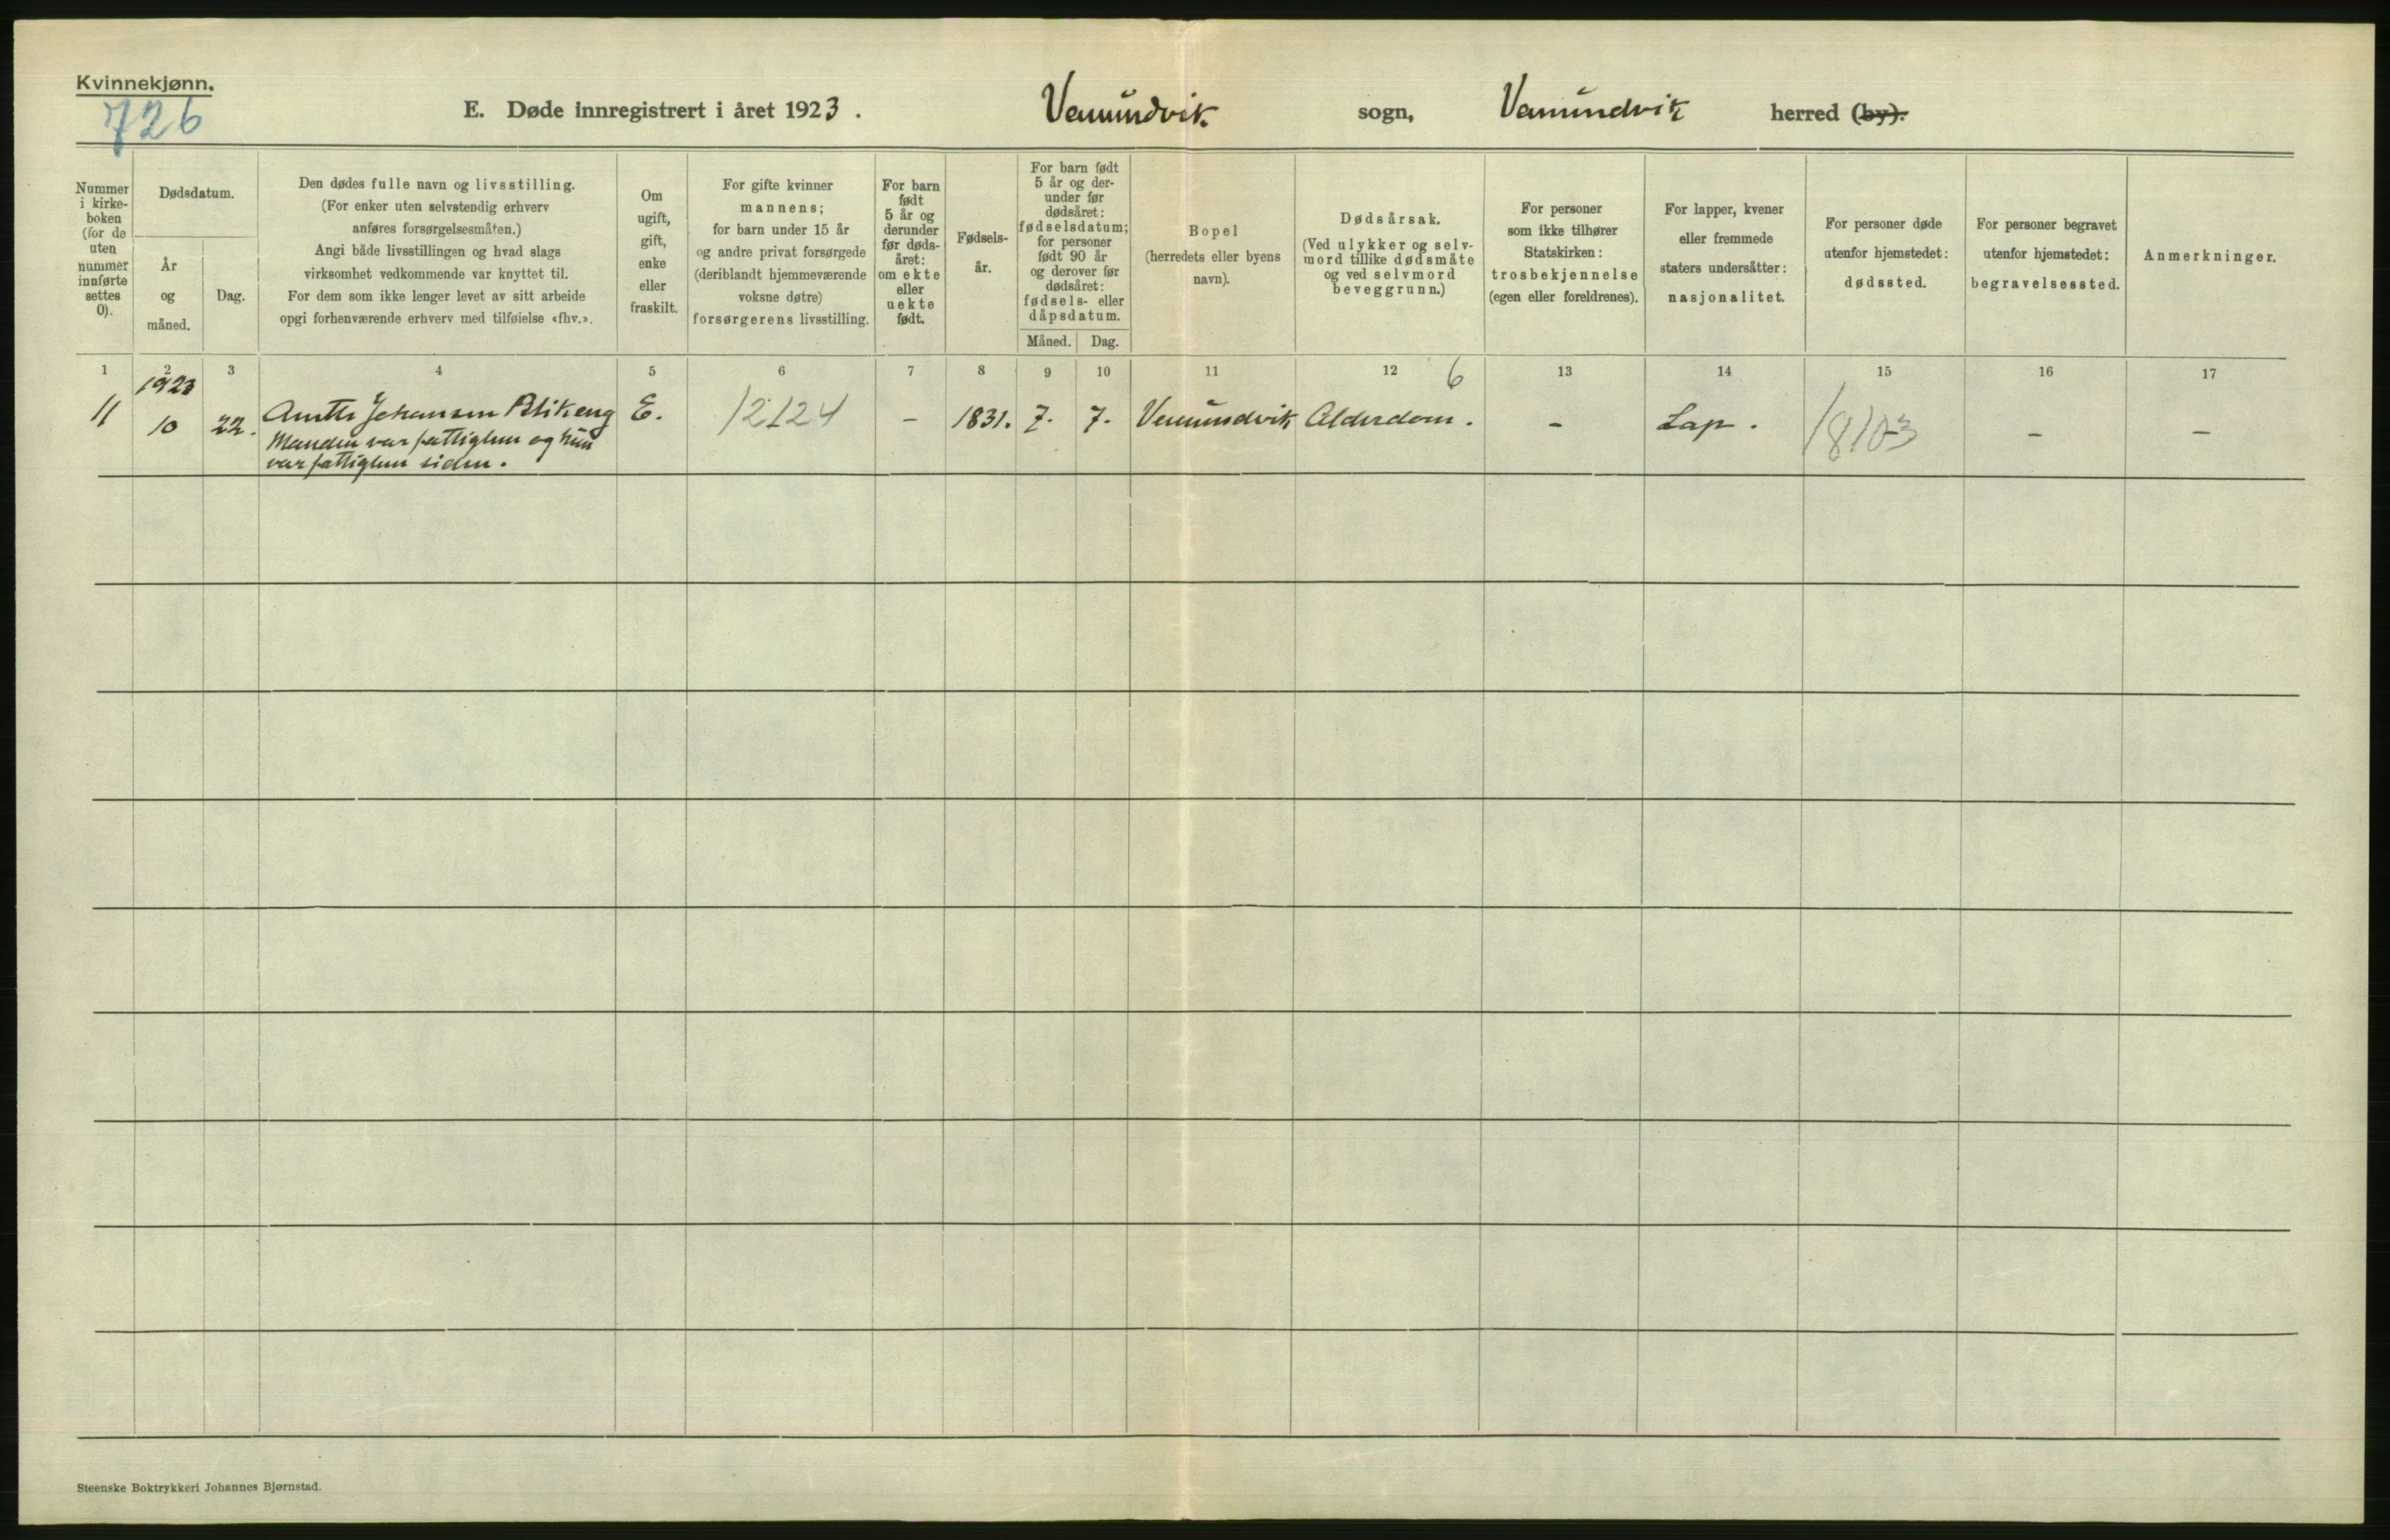 Kvinnekjønn.
726
E. Døde innregistrert i året 1923.
Vemundvik sogn, Vemundvik herred (by).
Nummer
i kirke-
boken
(for de
uten
nummer
innførte
settes
0).
Dødsdatum.
År
og
måned.
Dag.
Den dødes fulle navn og livsstilling.
(For enker uten selvstendig erhverv
anføres forsørgelsesmåten.)
Angi både livsstillingen og hvad slags
virksomhet vedkommende var knyttet til.
For dem som ikke lenger levet av sitt arbeide
opgi forhenværende erhverv med tilføielse «fhv.».
Om
ugift,
gift,
enke
eller
fraskilt.
For gifte kvinner
mannens;
for barn under 15 år
og andre privat forsørgede
(deriblandt hjemmeværende
voksne døtre)
forsørgerens livsstilling.
For barn
født
5 år og
derunder
før døds-
året:
om ekte
eller
uekte
født.
Fødsels-
år.
For barn født
5 år og der-
under før
dødsåret:
fødselsdatum;
for personer
født 90 år
og derover før
dødsåret:
fødsels- eller
dåpsdatum.
Måned. Dag.
Bopel
(herredets eller byens
navn).
Dødsårsak.
(Ved ulykker og selv-
mord tillike dødsmåte
og ved selvmord
beveggrunn.)
For personer
som ikke tilhører
Statskirken:
trosbekjennelse
(egen eller foreldrenes).
For lapper, kvener
eller fremmede
staters undersåtter:
nasjonalitet.
For personer døde
utenfor hjemstedet:
dødssted.
For personer begravet
utenfor hjemstedet:
begravelsessted.
Anmerkninger.
1 2 3 4 5 6 7 8 9 10 11 12 6 13 14 15 16 17
1923
11 10 22. Johansen Blikeng E. 12124 - 1831. 7. 7. Vemundvik Alderdom. - Lap. 18103 - -
Manden var fattiglem og hun
var fattiglem siden.
Steenske Boktrykkeri Johannes Bjørnstad.